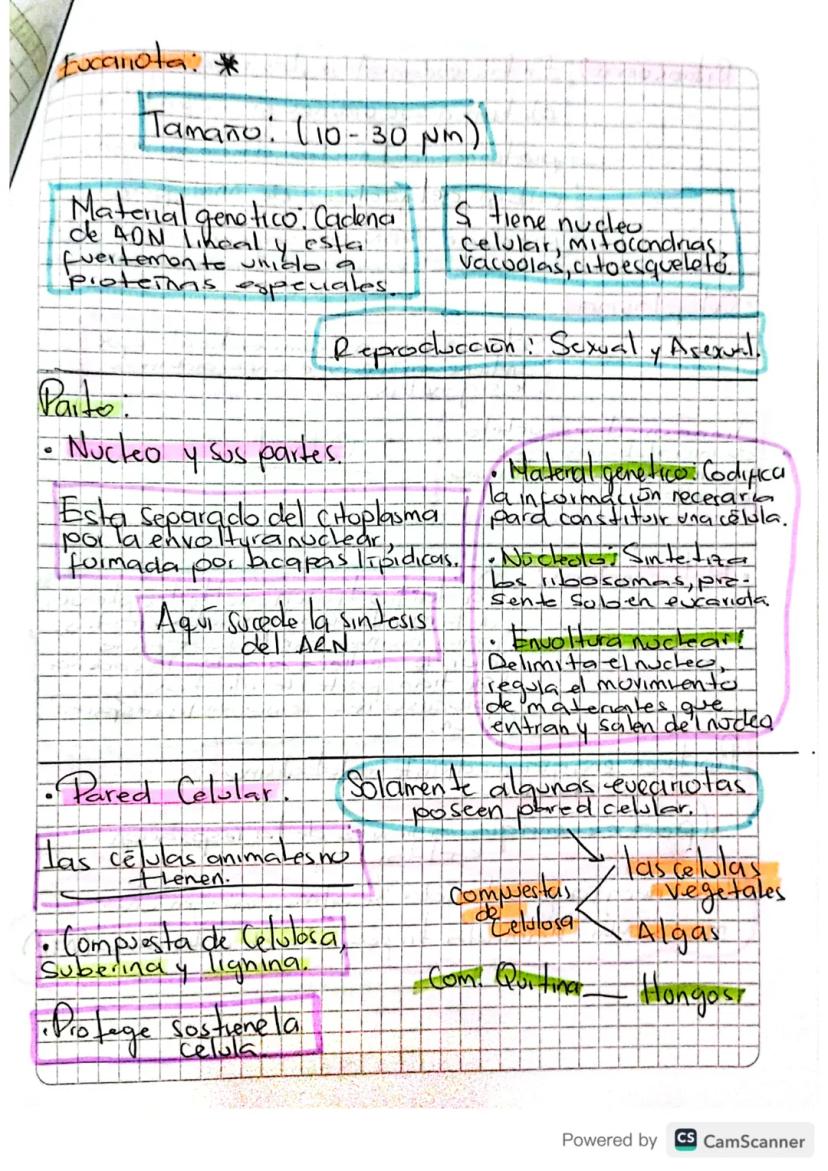 Eucariota: *
Tamaño: (10 - 30 µm)
Material genetico: Cadena
de ADN lineal y esta
fuertemente unido a
proteinas especiales.
Si tiene nucleo
celular, mitocondrias,
vacuolas, citoesqueleto.
Reproducción: Sexual y Asexual.
Parte:
• Nucleo y sus partes.
Esta separado del citoplasma
por la envoltura nuclear,
formada por bicapas lipidicas.
Aquí sucede la sintesis
del ARN
• Material genetico: Codifica
la información necesaria
para constituir una célula.
• Nucleolo: Sintetiza
los ribosomas, pre-
sente solo en eucariota
• Envoltura nuclear:
Delimita el nucleo,
regula el movimiento
de materiales que
entran y salen del nucleo
• Pared Celular:
Solamente algunas eucariotas
poseen pared celular.
las células animales no
tienen.
• Compuesta de Celulosa,
Suberina y lignina.
• Protege sostiene la
celula
Compuestas
de
Celulosa
las celulas
vegetales
Algas
Com. Quitina — Hongos
Powered by CS CamScanner